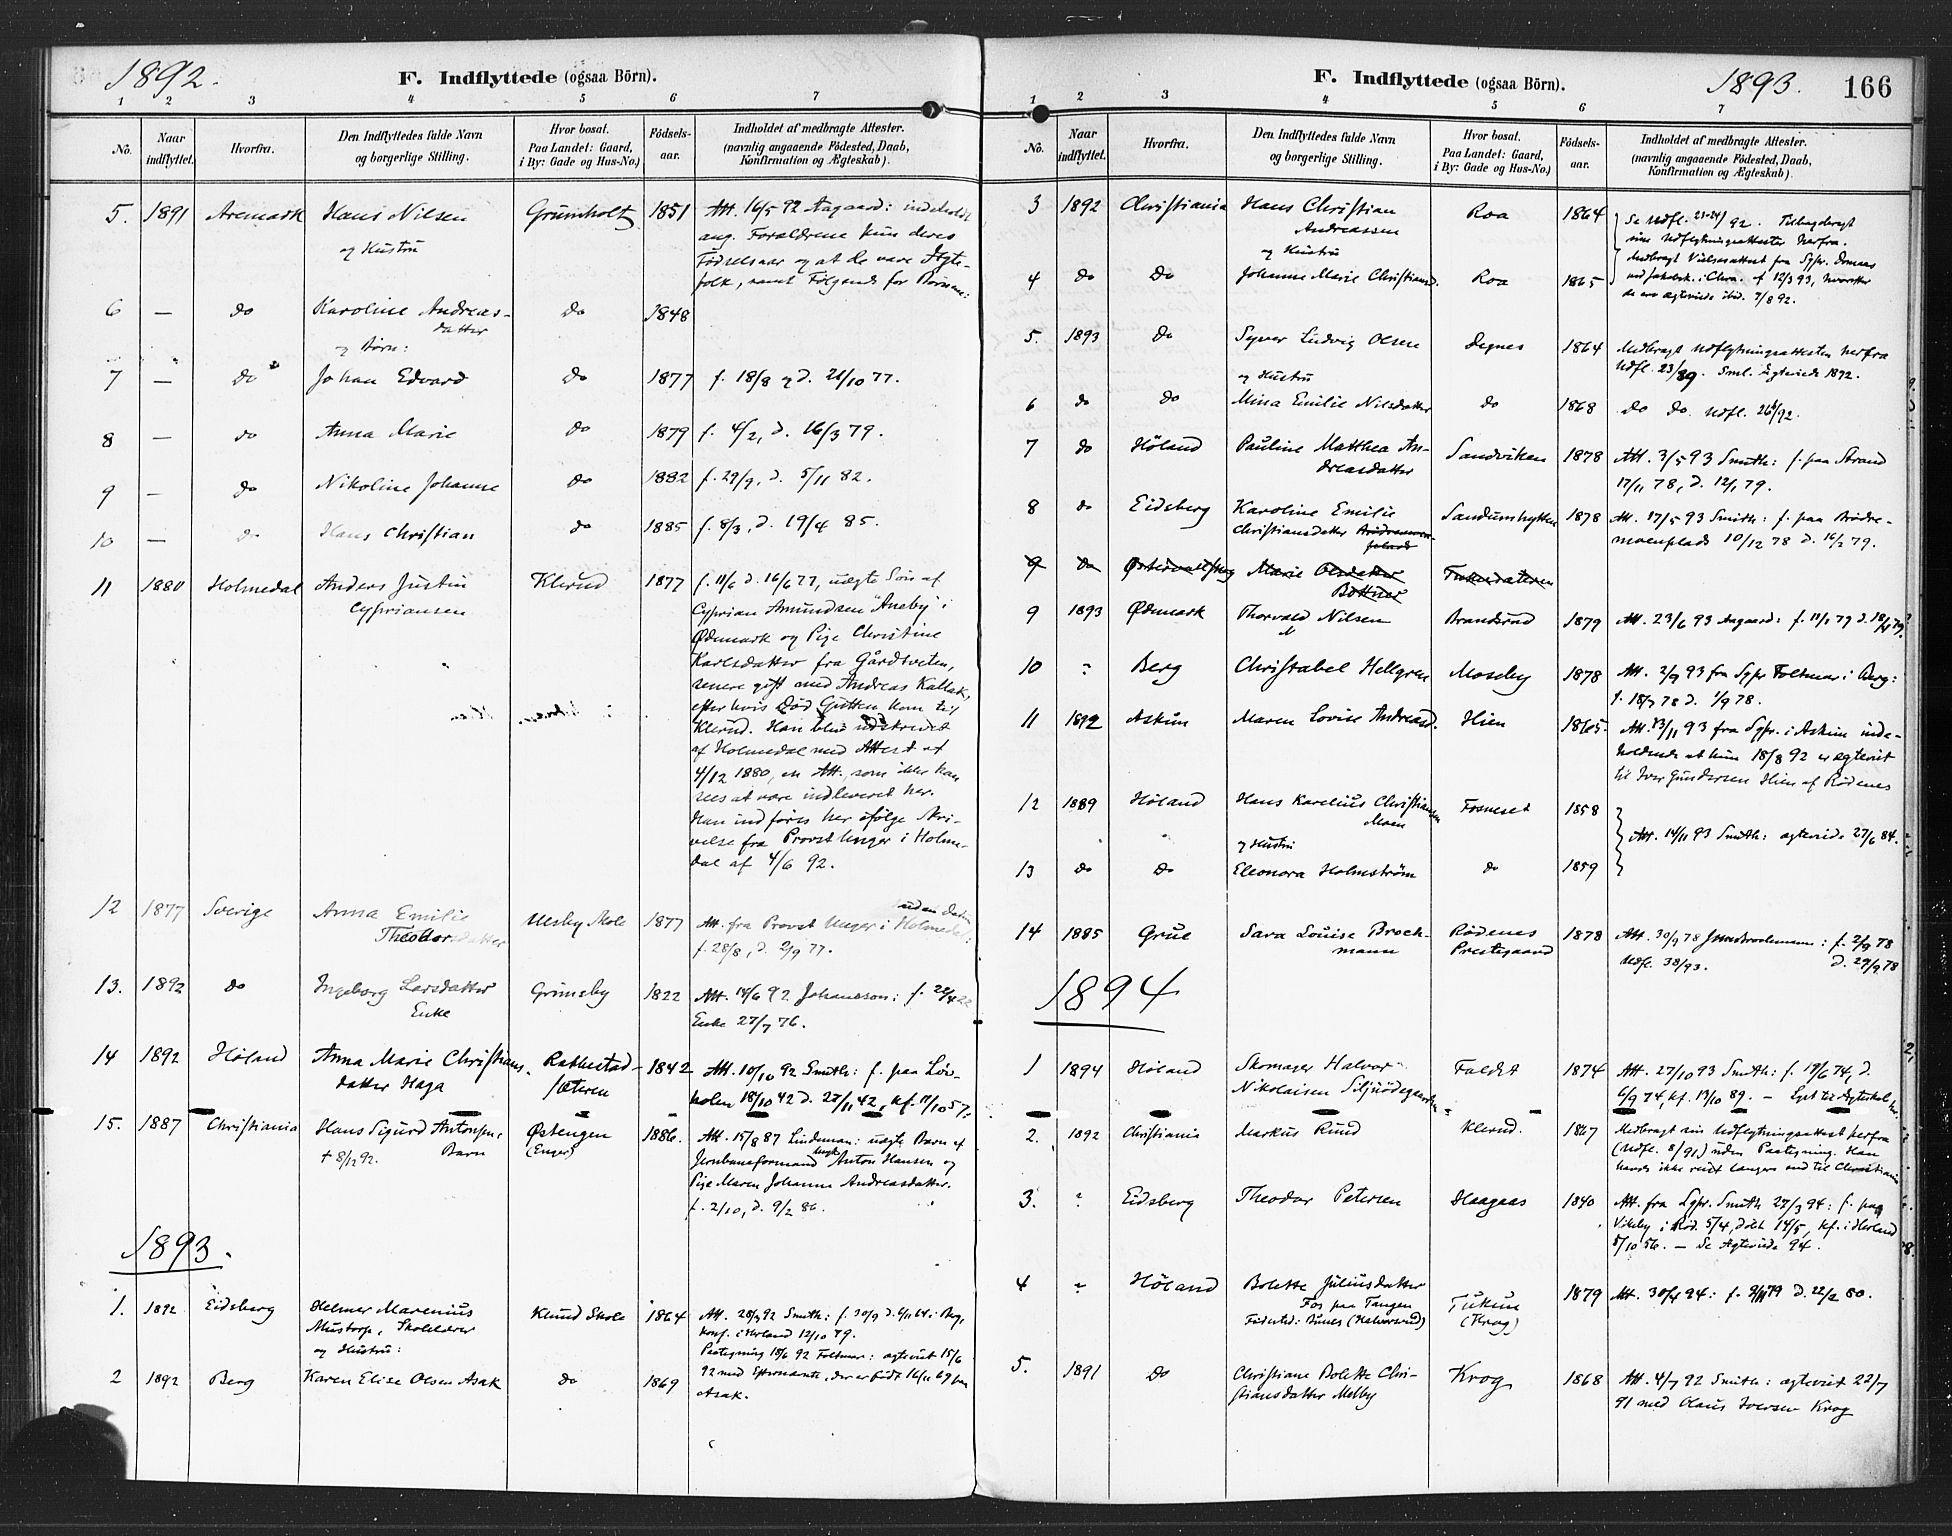 1892.
F. Indflyttede (ogsaa Börn).
1 2 3 4 5 6 7
No. Naar indflyttet. Hvorfra. Den Indflyttedes fulde Navn og borgerlige Stilling. Hvor bosat. Paa Landet: Gaard, i By: Gade og Hus-No.) Födsels-aar. Indholdet af medbragte Attester. (navnlig angaaende Födested, Daab, Konfirmation og Ægteskab).
5. 1891 Aremark Hans Nilsen Grümholt 1851 Att. 16/5 92 Aagaard: indeholdt
og Hustru ang. Forældrene kun deres
Fødselsaar og at de vare Ægte-
folk, samt Følgende for Børnene:
6 — do Karoline Andreas- do 1848
datter
og Børn:
7 — do Johan Edvard do 1877 f. 18/8 og d. 21/10 77.
8 — do Anna Marie do 1879 f. 4/2, d. 16/3 79.
9 — do Nikoline Johanne do 1882 f. 29/9, d. 5/11 82.
10 — do Hans Christian do 1885 f. 8/3, d. 19/4 85.
11 1880 Holmedal Anders Justin Klerud 1877 f. 11/6 d. 16/6 77, uægte Søn af
Cypriansen Cyprian Amundsen "Aneby" i
Ødemark og Pige Christine
Karlsdatter fra Gårdsveten,
senere gift med Andreas Kallak,
efter hvis Død Gutten kom til
Klerud. Han blev udskrevet
af Holmedal med Attest af
4/12 1880, en Att. som ikke kan
sees at være indleveret her.
Han indføres her ifølge Skri-
velse fra Provst Unger i Holme-
dal af 4/6 92.
12 1877 Sverige Anna Emilie Ulsby Skole 1877 Att. fra Provst Unger i Holmedal: uden Datum
Theodorsdatter f. 28/8, d. 2/9 77.
13. 1892 do Ingeborg Larsdatter Grimsby 1822 Att. 14/6 92 Johansson: f. 22/4 22
Enke Enke 27/7 76.
14 1892 Høland Anna Marie Christians- Rakkestad- 1842 Att. 10/10 92 Smith: f. paa Løv-
datter Haga sæteren holm 18/10 42 d. 27/11 42, kf. 11/10 57.
15. 1887 Christiania Hans Sigurd Antonsen, Østengen 1886. Att. 15/8 87 Lindeman: uægte Barn af
† 8/12 92. Barn (Enger) Jernbaneformand Anton Hansen og
Pige Maren Johanne Andreasdatter.
f. 2/10, d. 9/2 86.
1893.
1. 1892 Eidsberg Helmer Marenius Klund Skole 1864 Att. 28/9 92 Smith: f. 30/9 d. 6/11 64 i Berg,
Mustorp, Skolelærer konf. i Herland 12/10 79.
og Hustru: Paategning 15/6 92 Foltmar: ægteviet 15/6
2 1892 Berg Karen Elise Olsen Asak do 1869 92 med Efternævnte, der er født 16/11 69 paa
Asak.
F. Indflyttede (ogsaa Börn).
1893.
166
1 2 3 4 5 6 7
No. Naar indflyttet. Hvorfra. Den Indflyttedes fulde Navn og borgerlige Stilling. Hvor bosat. Paa Landet: Gaard, i By: Gade og Hus-No.) Födsels-aar. Indholdet af medbragte Attester. (navnlig angaaende Födested, Daab, Konfirmation og Ægteskab).
3 1892 Christiania Hans Christian Roa 1864 Se Udfl. 23-24/92. Tilbagebragt
Andreassen sine Udflytningsattester herfra.
og Hustru Medbragt Vielsesattest fra Sgpr.
4 do Do Johanne Marie Christiansd. Roa 1865 ved Jakobsk. i Chra. af 12/3 93, hvorefter
de ere ægteviede ibid. 7/8 92.
5. 1893 Do Syver Ludvig Olsen Degnes 1864 Medbragt Udflytningsattesten herfra
og Hustru Udfl. 23/89. Sml. Ægteviede 1892.
6 do do Mina Emilie Nilsdatter do 1868 Do Do. Udfl. 26/92.
7 do Høland Pauline Matthea An- Sandviken 1878 Att. 3/5 93 Smith: f. paa Strand
dreasdatter 17/11 78, d. 12/1 79.
8 do Eidsberg Karoline Emilie Sandumhytten 1878 Att. 17/5 93 Smith: f. paa Brødre-
Christiansdatter moenplads 10/12 78 d. 16/2 79.
9 Do Marie Olsdatter
Bottner
9 1893 Ødemark Thorvald Nilsen Brandsrud 1879 Att. 23/6 93 Aagaard: f. 11/1 79 d. 18/4 79.
10 " Berg Christabel Hellgren Moseby 1878 Att. 2/9 93 fra Sgpr Foltmar i Berg:
f. 18/7 78 d. 1/9 78.
11 1892 Askim Maren Lovise Andreasd. Hien 1865. Att. 13/11 93 fra Sgpr. i Askim inde-
holdende at hun 18/8 92 er ægteviet
til Iver Gundersen Hien af Rødenes
12 1889 Høland Hans Karelius Christiansen Fosneset 1858
Moen
og Hustru Att. 14/11 93 Smith: ægteviede 27/6 84.
13 do Do Eleonora Holmstrøm do 1859
14 1885 Grue Sara Louise Brock- Rødenes 1878 Att. 30/9 78 : f. 2/9 78
mann Prestegaard Udfl. 38/93. d. 29/9 78
1894
1 1894 Høland Skomager Halvor Faldet 1874 Att. 27/10 93 Smith: f. 19/6 74, d
Nikolaisen 6/9 74, kf. 13/10 89. — Lyst til Ægteskab her.
2. 1892 Christiania Markus Rund Klerud. 1867 Medbragt sin Udflytningsattest herfra
(Udfl. 8/91) uden Paategning. Han
havde ikke reist længere end til Christiania
3. " Eidsberg Theodor Petersen Haagaas 1840 Att. fra Sgpr. Smith 27/3 94: f. paa
Vikeby i Rød. 5/4, døbt 14/5, kf. i Herland
5/10 56. — Se Ægteviede 94.
4 " Høland Bolette Juliusdatter Tukun 1879 Att. 30/4 94: f. 9/11 79 d. 22/2 80.
Fos paa Tangen (Krog)
Fødested: (Halvorsrud)
5. 1891 Do Christiane Bolette Chri- Krog 1868 Att. 4/7 92 Smith: ægteviet 22/7
stiansdatter Melby 91 med Olaus Iversen Krog